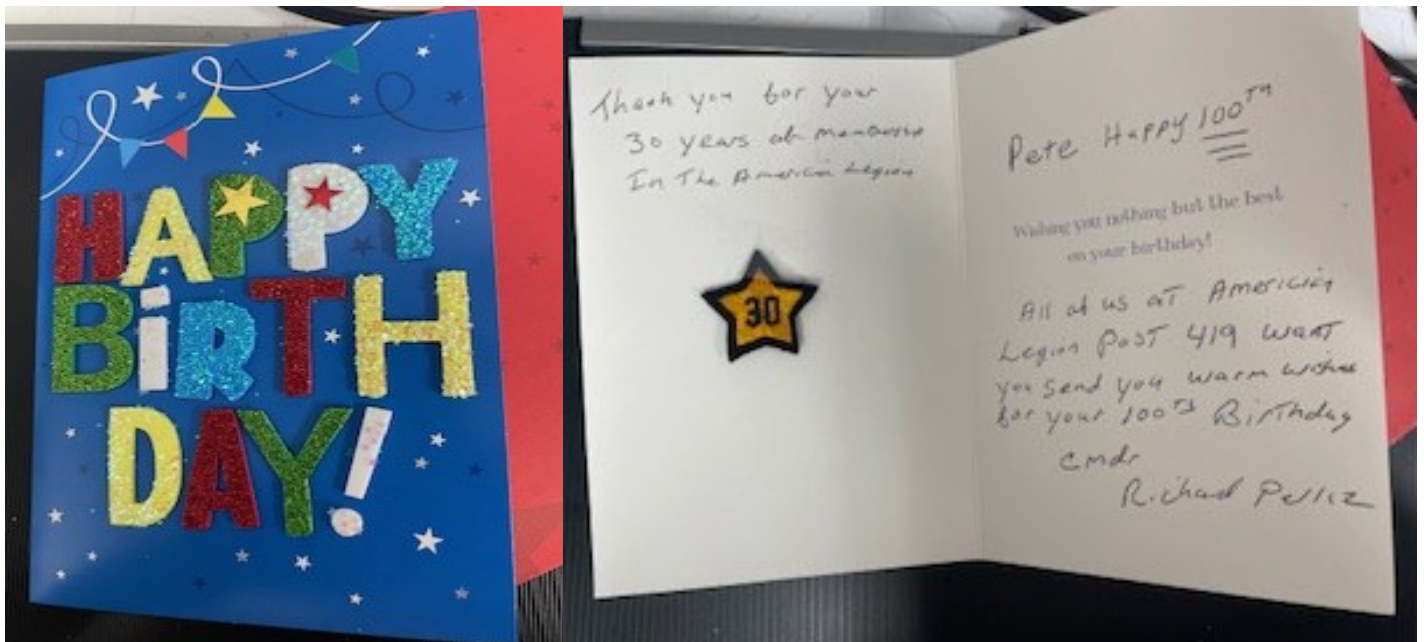 HAPPY
BiRTH
DAY!
Thank you for your
30 years of membership
In The American Legion
30
Pete Happy 100TH
Wishing you nothing but the best
on your birthday!
All of us at American
Legion Post 419 want
you send you warm wishes
for your 100TH Birthday
cmdr
Richard